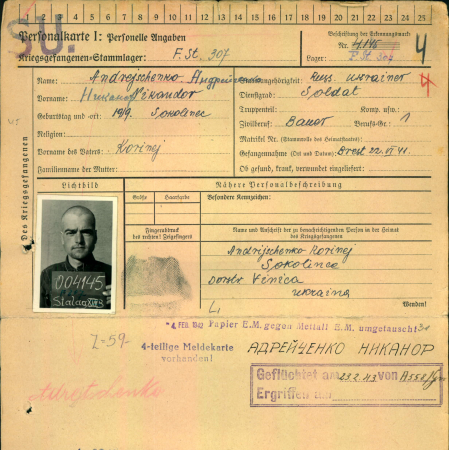 SU.
1 2 3 4 5 6 7 8 9 10 11 12 13 14 15 16 17 18 19 20 21 22 23 24 25
Personalkarte I: Personelle Angaben
Kriegsgefangenen-Stammlager: F. St. 307
Beschriftung der Erkennungsmarke
Nr. 4145
Lager: F. St. 307
4
Des Kriegsgefangenen
Name: Andrejschenko
Staatsangehörigkeit: Russ. ukrainer
Vorname: Nikandor
Dienstgrad: Soldat
Truppenteil: Komp. usw.:
Geburtstag und -ort: 1919. Sokolinec
Zivilberuf: Bauer Berufs-Gr.: 1
Religion:
Matrikel Nr. (Stammrolle des Heimatstaates):
Vorname des Vaters: Kornej
Gefangennahme (Ort und Datum): Brest 22.VI 41.
Familienname der Mutter:
Ob gesund, krank, verwundet eingeliefert:
Lichtbild
Nähere Personalbeschreibung
Größe Haarfarbe
Besondere Kennzeichen:
Fingerabdruck
des rechten! Zeigefingers
Name und Anschrift der zu benachrichtigenden Person in der Heimat
des Kriegsgefangenen
Andrijschenko Kornej
Sokolinec
Vinica
Ukraina
Wenden!
004145
Stalag XVII B
4. FEB. 1942 Papier E.M. gegen Metall E.M. umgetauscht
Z-59-
4-teilige Meldekarte
vorhanden!
АДРЕЙЧЕНКО НИКАНОР
Geflüchtet am 23.2.43 von A558/
Ergriffen am